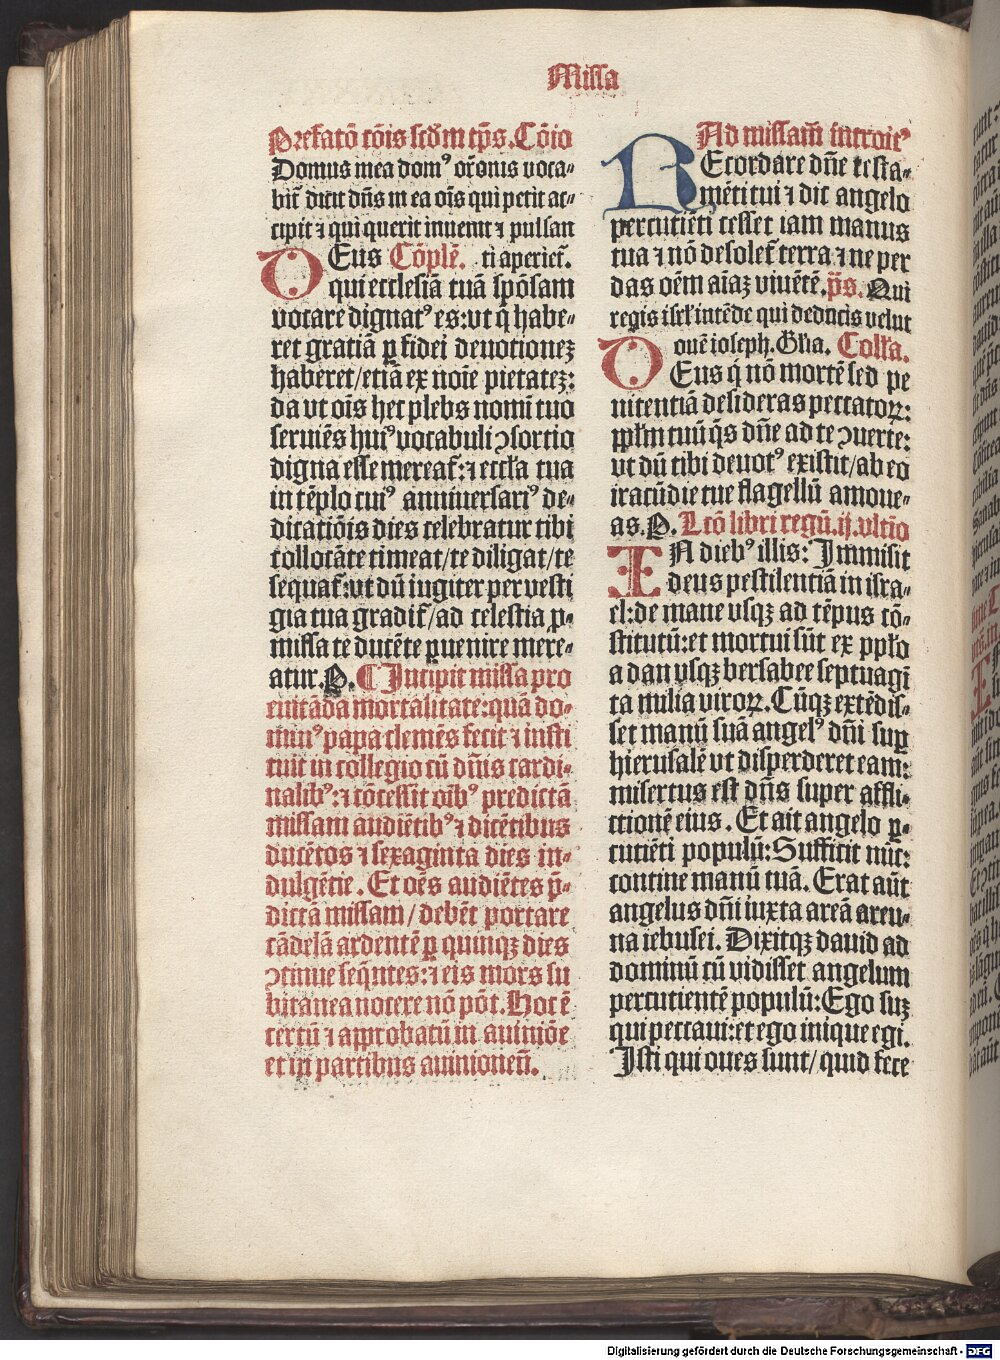 Missa
Prefatō cōis scd'm tp̄s. Cōio
Domus mea domꝰ or̄onis voca-
bit᷑ dicit dn̄s in ea oīs qui petit ac-
cipit ⁊ qui querit inuenit ⁊ pulsan
DEus Cōplē. ti ape

riet᷑.
qui ecclesiā tuā spōsam
vocare dignatꝰ es: vt q̄ habe-
ret gratiā ꝑ fidei deuotionez
haberet/etiā ex noīe pietatez:
da vt oīs hec plebs nomi tuo
seruiēs huiꝰ vocabuli ꝯsortio
digna esse mereat᷑: ⁊ eccła tua
in tēplo cuiꝰ anniuersariꝰ de-
dicatiōis dies celebratur tibi
collocāte timeat/te diligat/te
sequat᷑: vt dū iugiter per vesti
gia tua gradit᷑/ad celestia ꝓ-
missa te ducēte ꝑuenire mere-
atur. P. ¶ Incipit missa pro
euitāda mortalitate: quā do-
minꝰ papa clemēs fecit ⁊ insti
tuit in collegio cū dn̄is cardi-
nalibꝰ: ⁊ cōcessit oībꝰ predictā
missam audiētibꝰ ⁊ dicētibus
ducētos ⁊ sexaginta dies in-
dulgētie. Et oēs audiētes p̄-
dictā missam/debēt portare
cādelā ardentē ꝑ quinqꝫ dies
ꝯtinue seq̄ntes: ⁊ eis mors su
bitanea nocere nō pōt. Hoc ē
certū ⁊ approbatū in auiniōe
et in partibus auinioneñ.
Ad missam̄ introitꝰ
REcordare dn̄e testa-
mēti tui ⁊ dic angelo
percutiēti cesset iam manus
tua ⁊ nō desolet᷑ terra ⁊ ne per
das oēm aīaꝫ viuētē. p̄s. Qui
regis isrł intēde qui deducis velut
ouē ioseph. Głia. Colła.
DEus q̄ nō mortē sed pe
nitentiā desideras peccatoꝝ:
ppłm tuū q̄s dn̄e ad te ꝯuerte:
vt dū tibi deuotꝰ existit/ab eo
iracūdie tue flagellū amoue-
as. P. Lcō libri regū. ij. vltīo
IN diebꝰ illis: Immisit
deus pestilentiā in isra-
el: de mane vsqꝫ ad tēpus cō-
stitutū: et mortui sūt ex ppło
a dan vsqꝫ bersabee septuagī
ta milia viroꝝ. Cūqꝫ extēdis-
set manū suā angelꝰ dn̄i suꝑ
hierusalē vt disperderet eam:
misertus est dn̄s super affli-
ctionē eius. Et ait angelo ꝑ-
cutiēti populū: Sufficit nūc:
contine manū tuā. Erat aūt
angelus dn̄i iuxta areā areu-
na iebusei. Dixitqꝫ dauid ad
dominū cū vidisset angelum
percutientē populū: Ego suꝫ
qui peccaui: et ego inique egi.
Isti qui oues sunt/quid fece
Digitalisierung gefördert durch die Deutsche Forschungsgemeinschaft - DFG